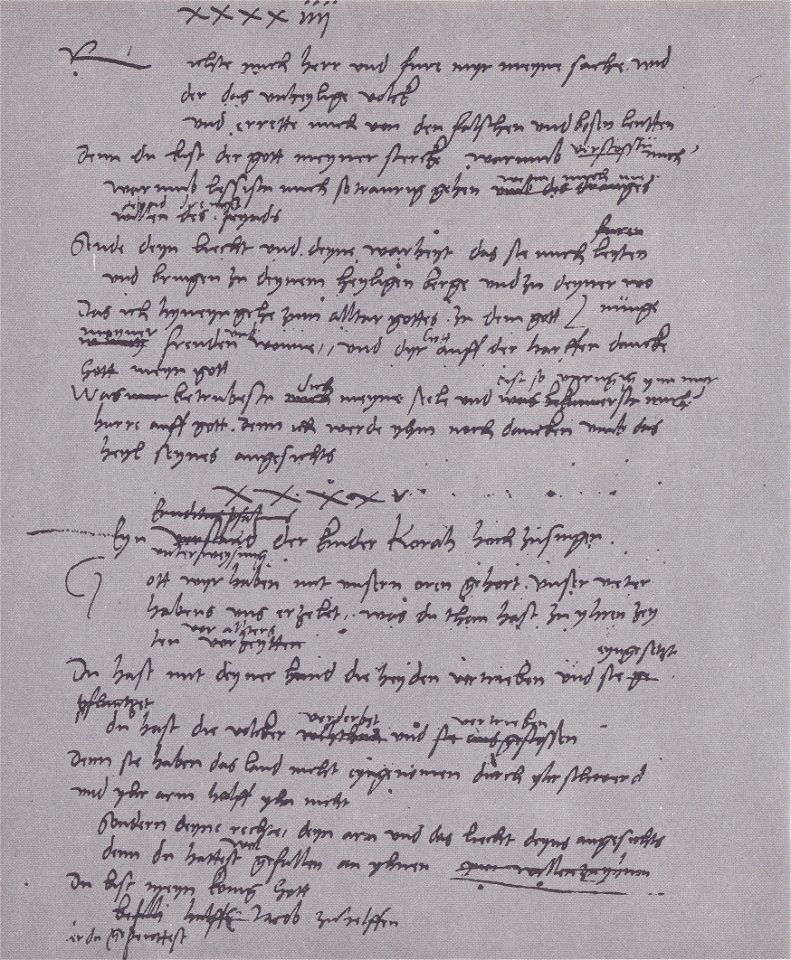 xxxxiiij
Richte mich herr und fure myr meyne sache wid
der das unheylige volck
und errette mich von den falschen und bosen leutten
Denn du bist der gott meyner stercke warumb verstossistu mich
warumb lessistu mich so traurig gehen
des feynds
furen
Sende deyn liecht und deyne warheyt das sie mich leyten
und bringen zu deynem heyligen berge und zu deyner wo
Das ich hyneyn gehe zum alltar gottes zu dem gott nunge
meyner freuden und wonne, und dyr auff der harffen dancke
Gott meyn gott
Was betrubestu dich meyne seele und bist so unrugig ynn myr
harre auff gott. Denn ich werde yhm noch dancken umb das
heyl seynes angesichts
xxxxv
Eyn der kinder Korah hoch zusingen.
unterweysung
Gott wyr haben mit unsern oren gehort, unser veter
habens uns erzelet, was du than hast zu yhren zey
ten vor alters vor zeytten
eyngesetzt
Du hast mit deyner hand die heyden vertrieben und sie ge
pflantzet
verderbet vertrieben
du hast die volcker und sie ausgestossen
Denn sie haben das land nicht eyngenomen durch yhr schwerd
und yhr arm halff yhn nicht
Sondern deyne rechte, deyn arm und das liecht deyns angesichts
denn du hattest wol gefallen an yhnen
Du bist meyn konig Gott
Jacob zu helffen